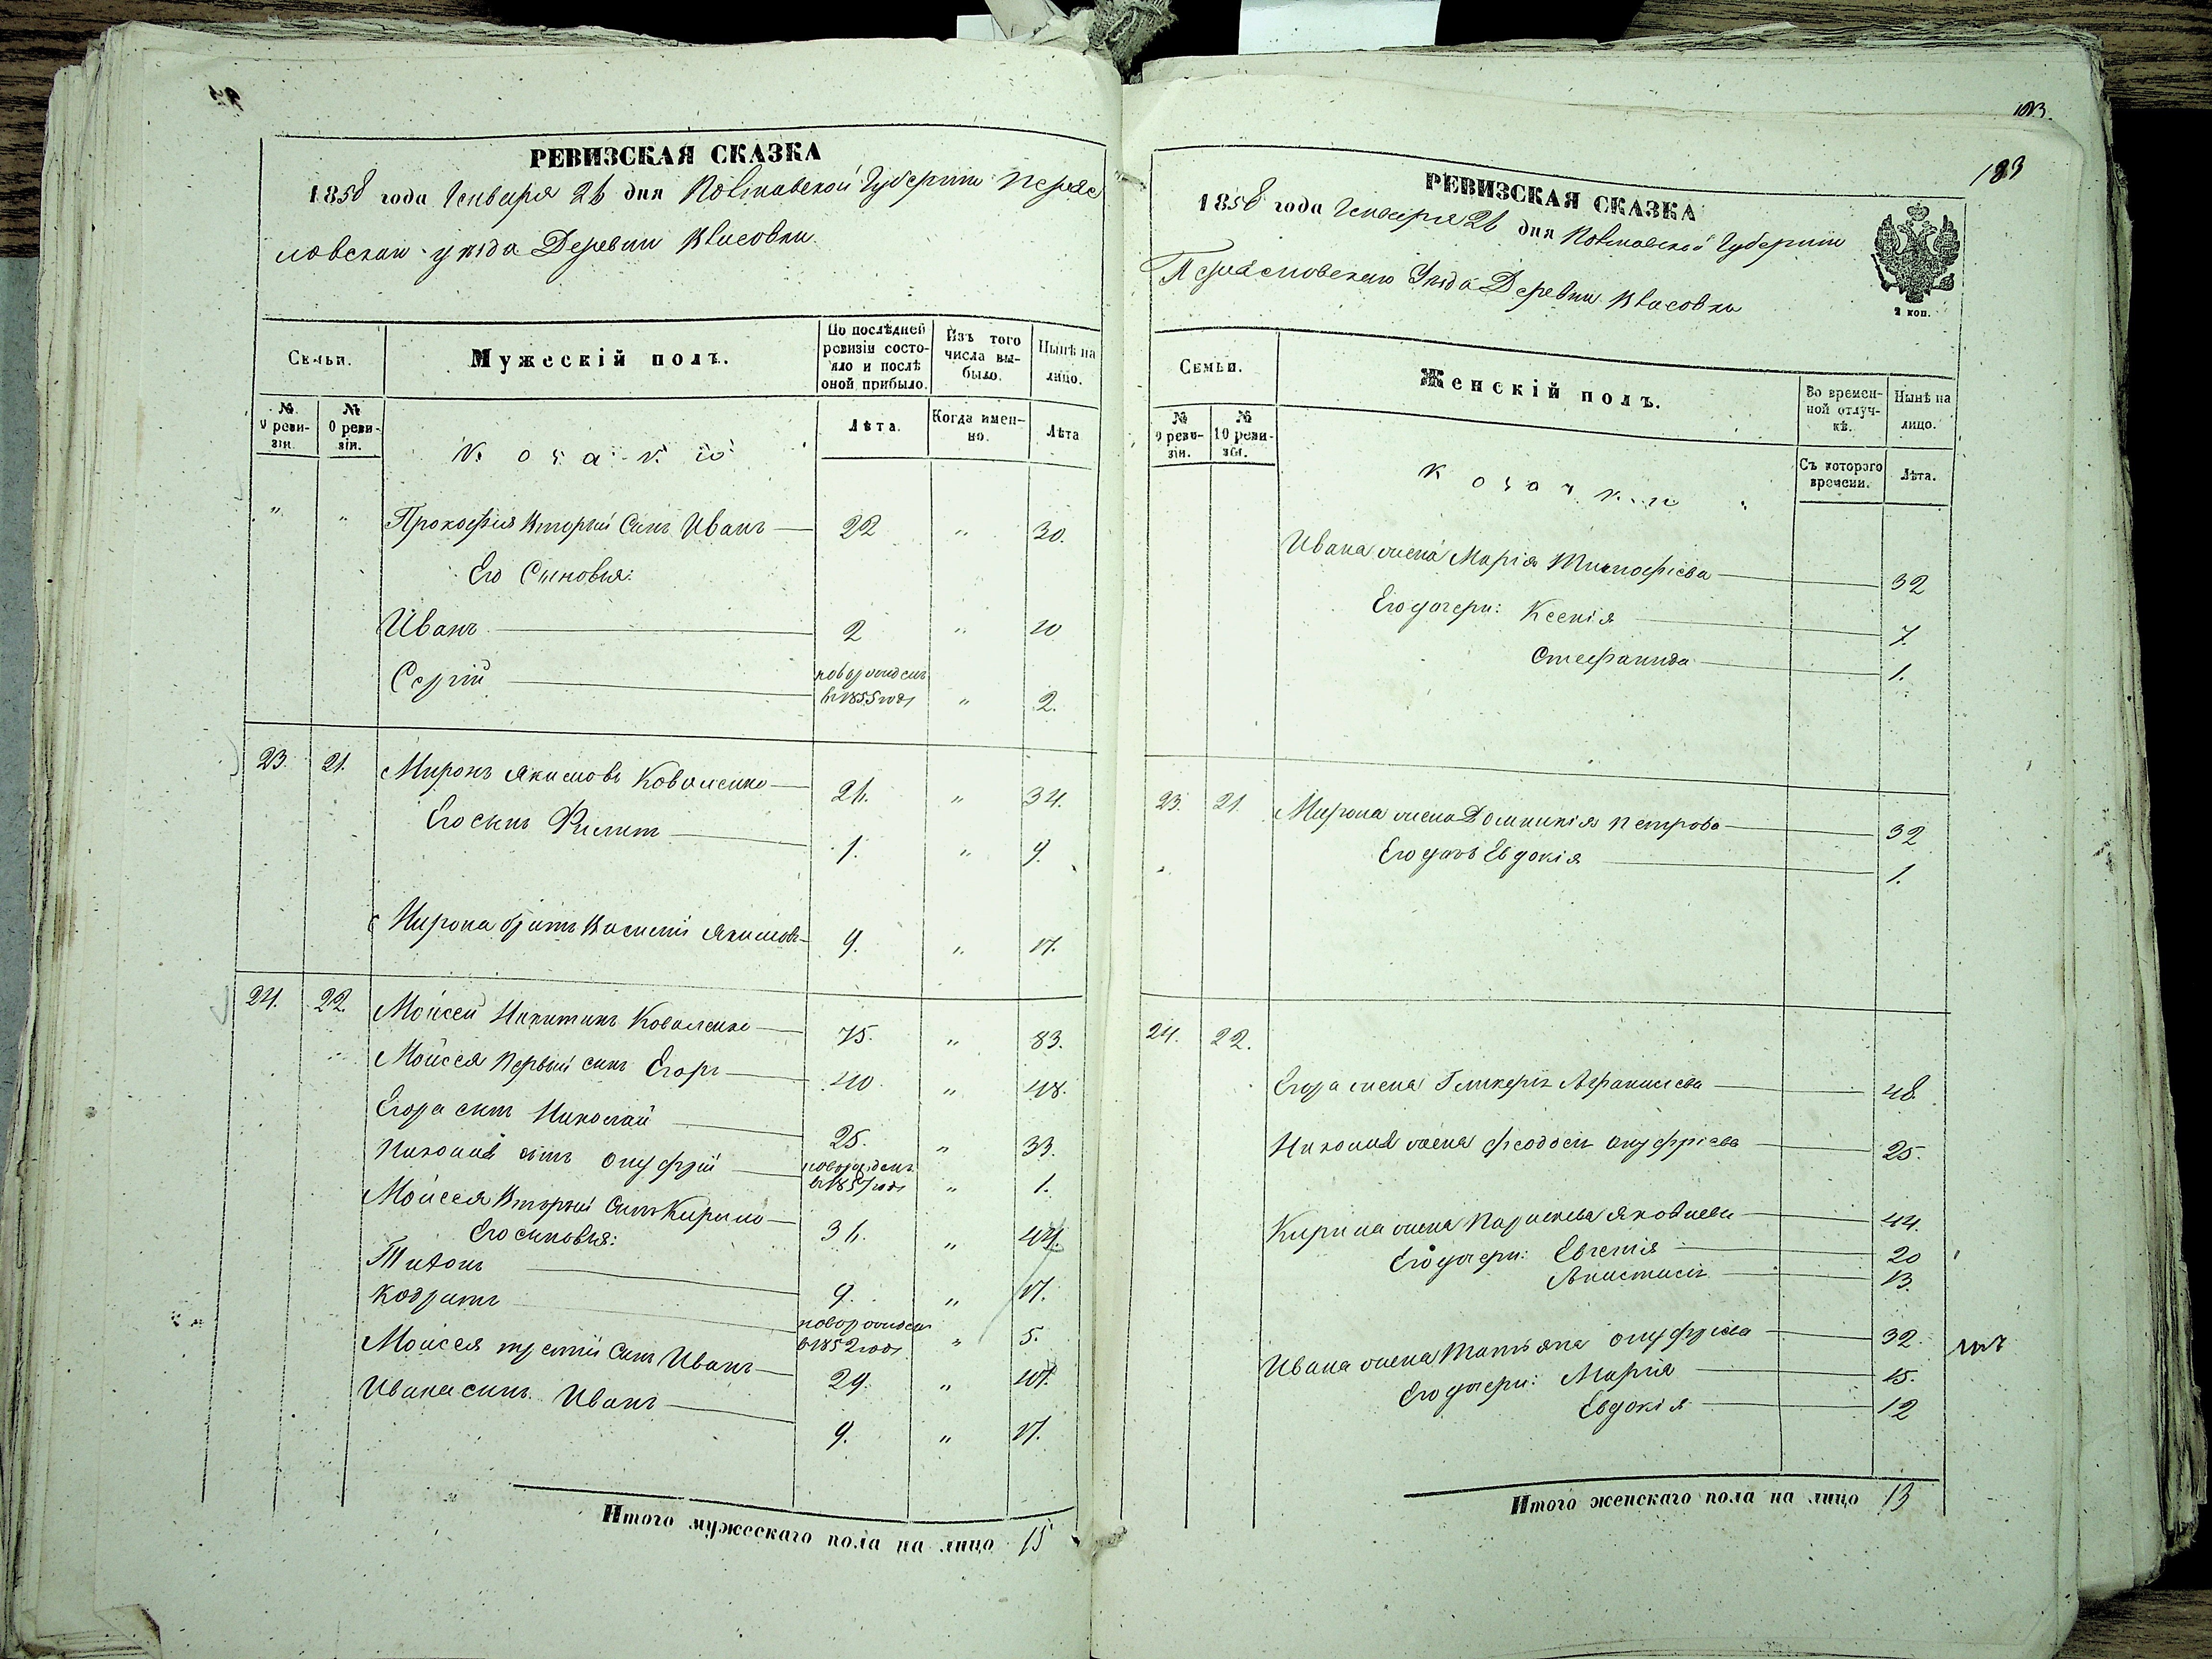 183
РЕВИЗСКАЯ СКАЗКА
1858 года Генваря 26 дня Полтавской Губернии Переяс
ловскаго уезда Деревни Власовки
Семьи.
Мужескій полъ.
По послѣдней ревизіи состояло и послѣ оной прибыло.
Изъ того числа выбыло.
Нынѣ на лицо.
№ 9 ревизіи.
№ 10 ревизіи.
Козаки
Лѣта.
Когда именно.
Лѣта
" " Прокофія Вторый Сынъ Иванъ 22 " 30.
Его Сыновья:
Иванъ 2 " 10
Сергій новорожденъ в 1855 годѣ " 2.
23. 21. Миронъ Якимовъ Коваленко 26. " 34.
Его сынъ Филипъ 1. " 9.
Мирона братъ Василій Якимовъ 9. " 17.
24. 22. Мойсей Никитинъ Коваленко 75. " 83.
Мойсея Первый сынъ Егоръ 40 " 48.
Егора сынъ Николай 25. " 33.
Николая сынъ Онуфрій новорожденъ в 1857 годѣ " 1.
Мойсея Вторый Сынъ Кирило 36. " 44.
Его сыновья:
Тихонъ 9. " 17.
Кодратъ новорожденъ в 1852 годѣ " 5.
Мойсея третій Сынъ Иванъ 29. "
Ивана сынъ Иванъ 9. " 17.
Итого мужескаго пола на лицо 15
183
РЕВИЗСКАЯ СКАЗКА
1858 года Генваря 26 дня Полтавской Губерніи
Переясловскаго Уезда Деревни Власовки
2 коп.
Семьи.
Женскій полъ.
Во временной отлучкѣ.
Нынѣ на лицо.
№ 9 ревизіи.
№ 10 ревизіи.
Козачки
Съ котораго времени.
Лѣта.
Ивана жена Марія Тимофіева 32
Его дочери: Ксенія 7.
Стефанида 1.
23. 21. Мирона жена Домникія Петрова 32
Его дочь Евдокія 1.
24. 22.
Егора жена Гликерія Афанасіева 48.
Николая жена Феодосія Онуфріева 25.
Кирила жена Параскева Яковлева 44.
Его дочери: Евгенія 20
Анастасія 13.
Ивана жена Татьяна Онуфріева 32.
Его дочери: Марія 15.
Евдокія 12
Итого женскаго пола на лицо 13